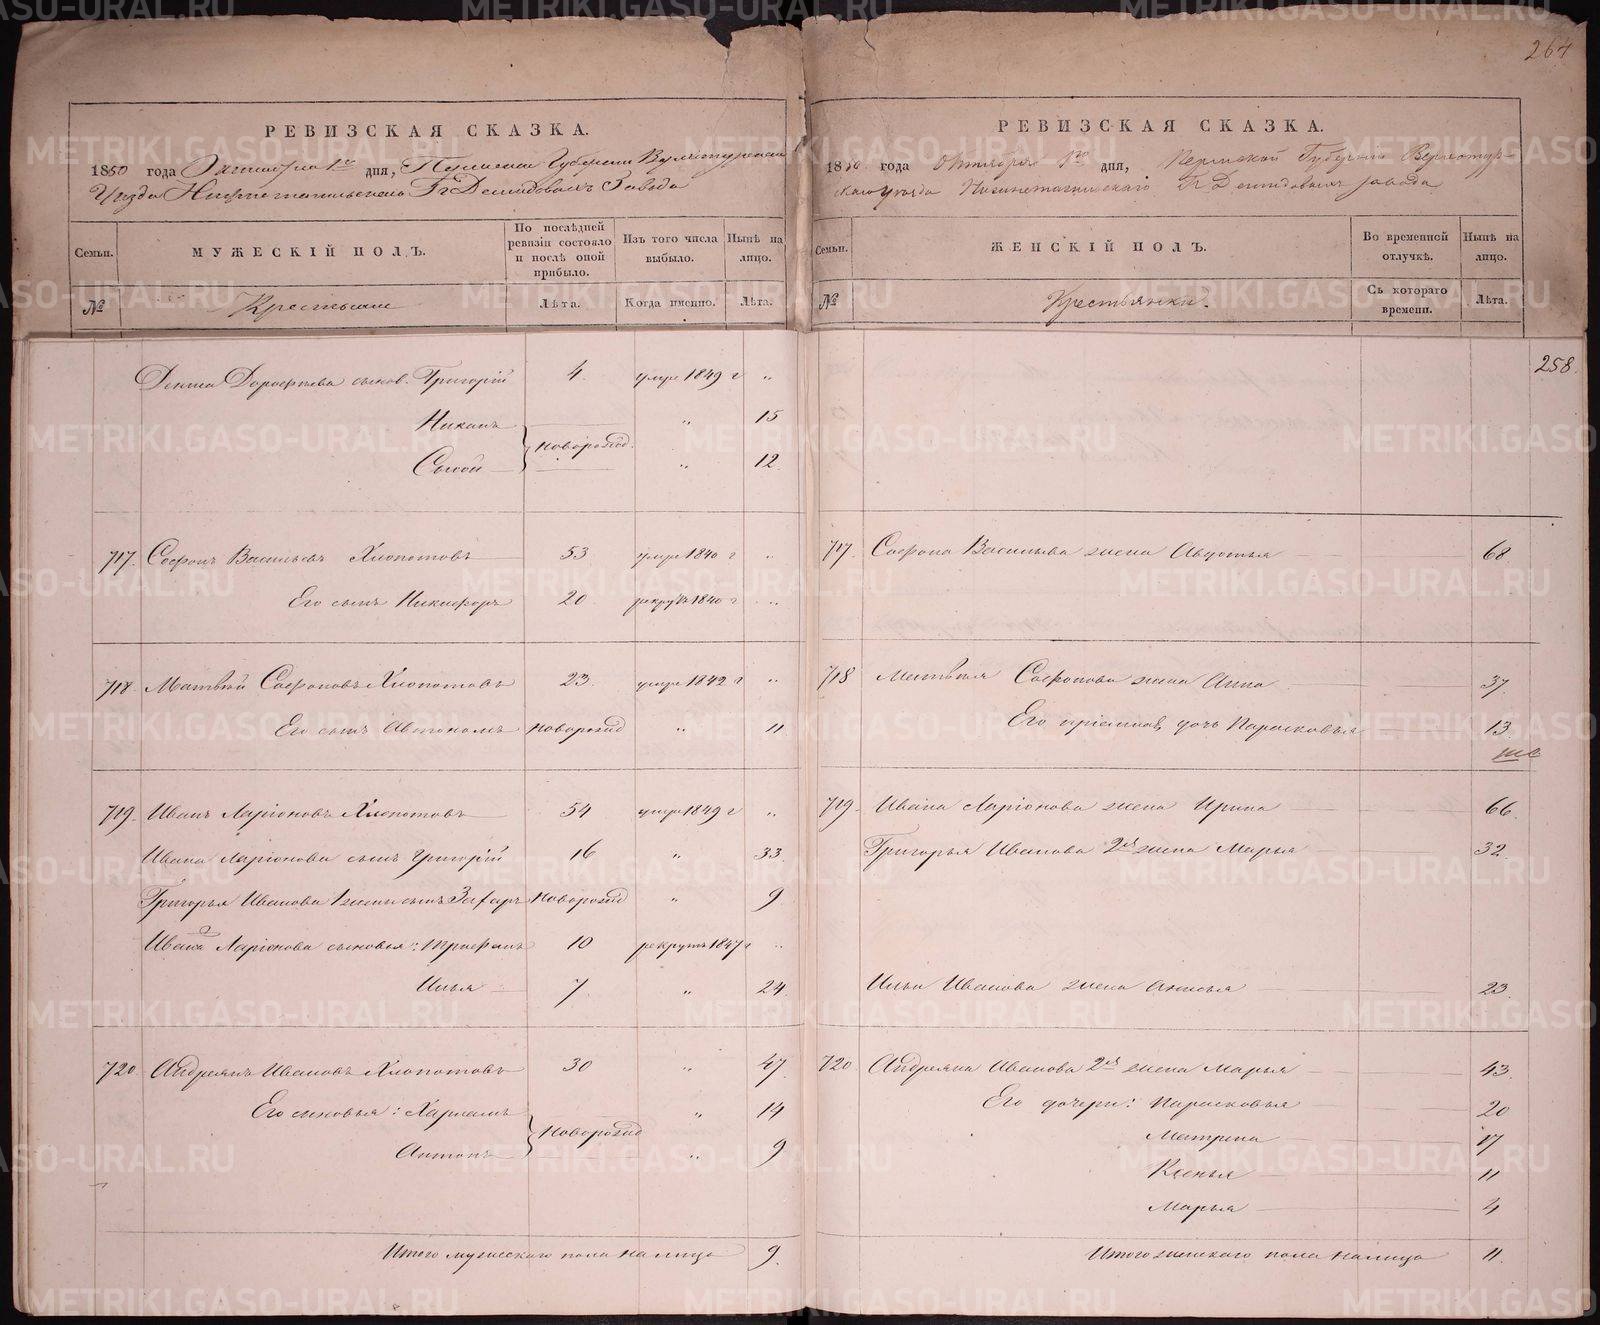 264
РЕВИЗСКАЯ СКАЗКА.
1850 года Октября 1го дня, Пермской Губернии Верхотурскаго
Уѣзда Нижнетагильскаго Гг Демидовыхъ Завода
Семьи.
МУЖЕСКІЙ ПОЛЪ.
По послѣдней ревизіи состояло и послѣ оной прибыло.
Изъ того числа выбыло.
Нынѣ на лицо.
№
Крестьяне
Лѣта.
Когда именно.
Лѣта.
Дорофѣева сынов. Григорій 4. умре 1849 г "
Никонъ " 15
новорожд.
Сысой " 12.
717. Софонъ Васильевъ Хлопотовъ 53 умре 1840 г "
Его сынъ Никифоръ 20 рекрут 1840 г "
718. Матвѣй Софоновъ Хлопотовъ 23. умре 1842 г "
Его сынъ Автономъ новорожд " 11
719. Иванъ Ларіоновъ Хлопотовъ 54 умре 1849 г "
Ивана Ларіонова сынъ Григорій 16 " 33.
Григорья Иванова 1 жены сынъ Захаръ новорожд " 9
Ивана Ларіонова сыновья: Трифанъ 10 рекрутъ 1847 г "
Илья 7. " 24.
720. Андреянъ Ивановъ Хлопотовъ 30 " 47.
Его сыновья: Харламъ " 14
новорожд
Антонъ " 9
Итого мужескаго пола налицо 9.
РЕВИЗСКАЯ СКАЗКА.
1850 года Октября 1го дня, Пермской Губерніи Верхотур-
скаго уѣзда Нижнетагильскаго Гг Демидовыхъ завода
Семьи.
ЖЕНСКІЙ ПОЛЪ.
Во временной отлучкѣ.
Нынѣ на лицо.
№
Крестьянки.
Съ котораго времени.
Лѣта.
258.
717. Софона Васильева жена Авдотья 68.
718 Матвѣя Софонова жена Анна 37.
Его пріемная дочь Парасковья 13.
719. Ивана Ларіонова жена Ирина 66.
Григорья Иванова 2я жена Марья 32.
Ильи Иванова жена 23.
720. Андреяна Иванова 2я жена Марья 43.
Его дочери: Парасковья 20
Матрена 17
Ксенья 11
Марья 4
Итого женскаго пола налицо 11.
METRIKI.GASO-URAL.RU